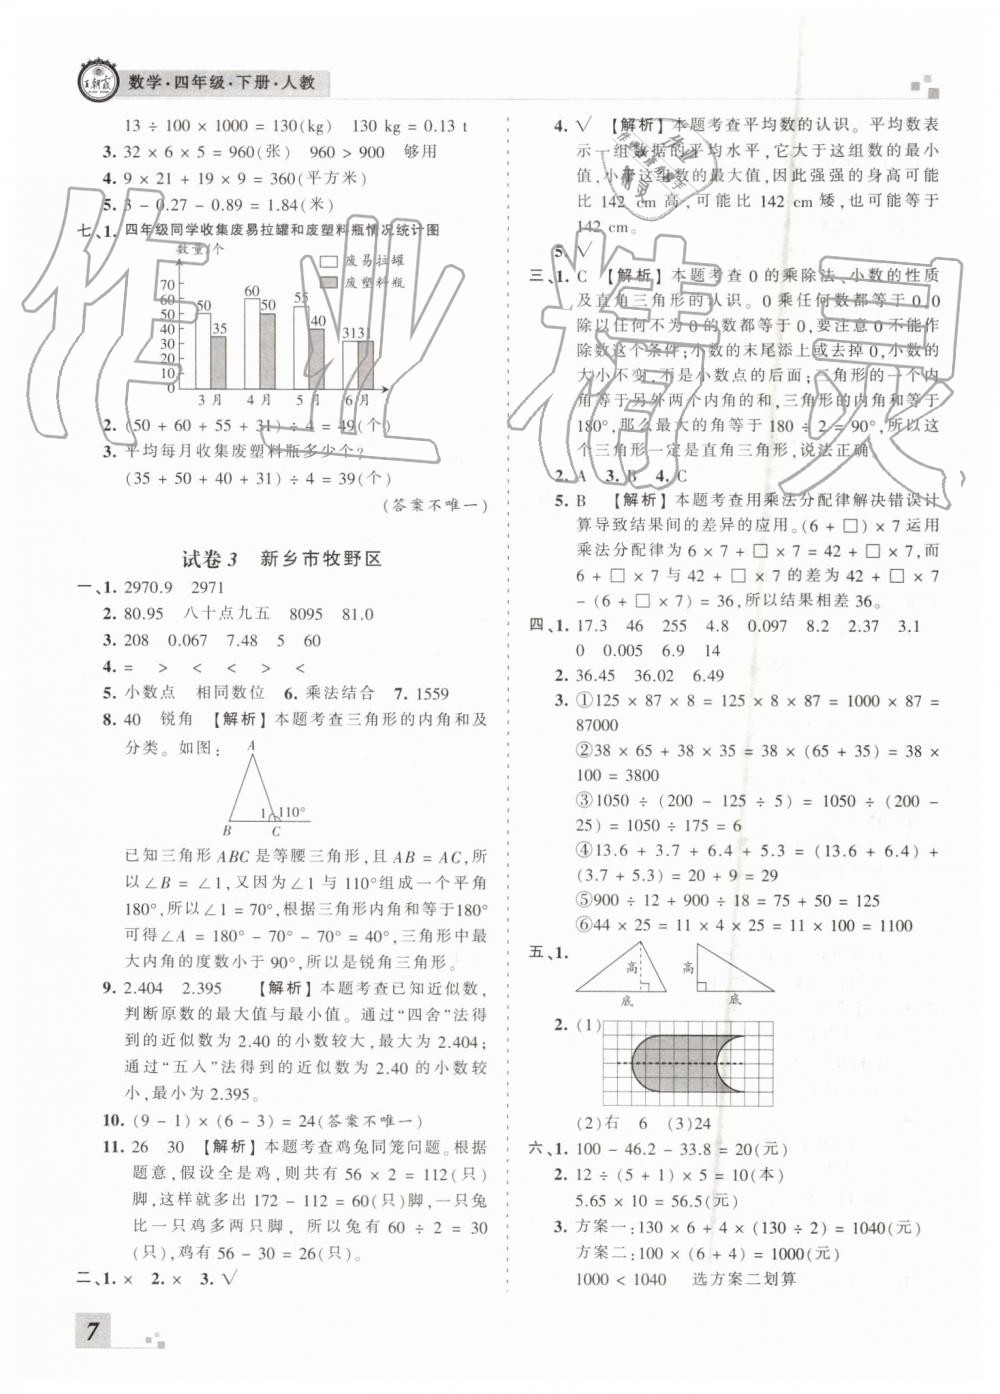 王朝霞
数学·四年级·下册·人教
13 ÷ 100 × 1000 = 130(kg)　130 kg = 0.13 t
3. 32 × 6 × 5 = 960(张)　960 > 900　够用
4. 9 × 21 + 19 × 9 = 360(平方米)
5. 3 - 0.27 - 0.89 = 1.84(米)
七、1. 四年级同学收集废易拉罐和废塑料瓶情况统计图
数量/个
废易拉罐
废塑料瓶
70
60
50
40
30
20
10
0
50 35 60 50 55 40 31 31
3月 4月 5月 6月 月份
2. (50 + 60 + 55 + 31) ÷ 4 = 49(个)
3. 平均每月收集废塑料瓶多少个?
(35 + 50 + 40 + 31) ÷ 4 = 39(个)
(答案不唯一)
试卷3　新乡市牧野区
一、1. 2970.9　2971
2. 80.95　八十点九五　8095　81.0
3. 208　0.067　7.48　5　60
4. =　>　<　<　>　<
5. 小数点　相同数位　6. 乘法结合　7. 1559
8. 40　锐角　【解析】本题考查三角形的内角和及
分类。如图:
A
1 110°
B C
已知三角形 ABC 是等腰三角形,且 AB = AC,所
以∠B = ∠1,又因为∠1 与 110°组成一个平角
180°,所以∠1 = 70°,根据三角形内角和等于180°
可得∠A = 180° - 70° - 70° = 40°,三角形中最
大内角的度数小于 90°,所以是锐角三角形。
9. 2.404　2.395　【解析】本题考查已知近似数,
判断原数的最大值与最小值。通过“四舍”法得
到的近似数为 2.40 的小数较大,最大为 2.404;
通过“五入”法得到的近似数为 2.40 的小数较
小,最小为 2.395。
10. (9 - 1) × (6 - 3) = 24(答案不唯一)
11. 26　30　【解析】本题考查鸡兔同笼问题。根据
题意,假设全是鸡,则共有 56 × 2 = 112(只)
脚,这样就多出 172 - 112 = 60(只)脚,一只兔
比一只鸡多两只脚, 所以兔有 60 ÷ 2 = 30
(只),鸡有 56 - 30 = 26(只)。
二、1. ×　2. ×　3. √
4. √　【解析】本题考查平均数的认识。平均数表
示一组数据的平均水平,它大于这组数的最小
值,小于这组数的最大值,因此强强的身高可能
比 142 cm 高,可能比 142 cm 矮,也可能等于
142 cm。
5. √
三、1. C　【解析】本题考查 0 的乘除法、小数的性质
及直角三角形的认识。0 乘任何数都等于 0,0
除以任何不为 0 的数都等于 0,要注意 0 不能作
除数这个条件;小数的末尾添上或去掉 0,小数的
大小不变,不是小数点的后面;三角形的一个内
角等于另外两个内角的和,三角形的内角和等于
180°,那么最大的角等于 180 ÷ 2 = 90°,所以这
个三角形一定是直角三角形,说法正确。
2. A　3. B　4. C
5. B　【解析】本题考查用乘法分配律解决错误计
算导致结果间的差异的应用。(6 + □) × 7 运用
乘法分配律为 6 × 7 + □ × 7 = 42 + □ × 7,而
6 + □ × 7 与 42 + □ × 7 的差为 42 + □ × 7
- (6 + □ × 7) = 36,所以结果相差 36。
四、1. 17.3　46　255　4.8　0.097　8.2　2.37　3.1
0　0.005　6.9　14
2. 36.45　36.02　6.49
3. ①125 × 87 × 8 = 125 × 8 × 87 = 1000 × 87 =
87000
②38 × 65 + 38 × 35 = 38 × (65 + 35) = 38 ×
100 = 3800
③1050 ÷ (200 - 125 ÷ 5) = 1050 ÷ (200 -
25) = 1050 ÷ 175 = 6
④13.6 + 3.7 + 6.4 + 5.3 = (13.6 + 6.4) +
(3.7 + 5.3) = 20 + 9 = 29
⑤900 ÷ 12 + 900 ÷ 18 = 75 + 50 = 125
⑥44 × 25 = 11 × 4 × 25 = 11 × 100 = 1100
五、1.
高 底 高 底
2. (1)
(2)右　6　(3)24
六、1. 100 - 46.2 - 33.8 = 20(元)
2. 12 ÷ (5 + 1) × 5 = 10(本)
5.65 × 10 = 56.5(元)
3. 方案一:130 × 6 + 4 × (130 ÷ 2) = 1040(元)
方案二:100 × (6 + 4) = 1000(元)
1000 < 1040　选方案二划算
7
作业精灵